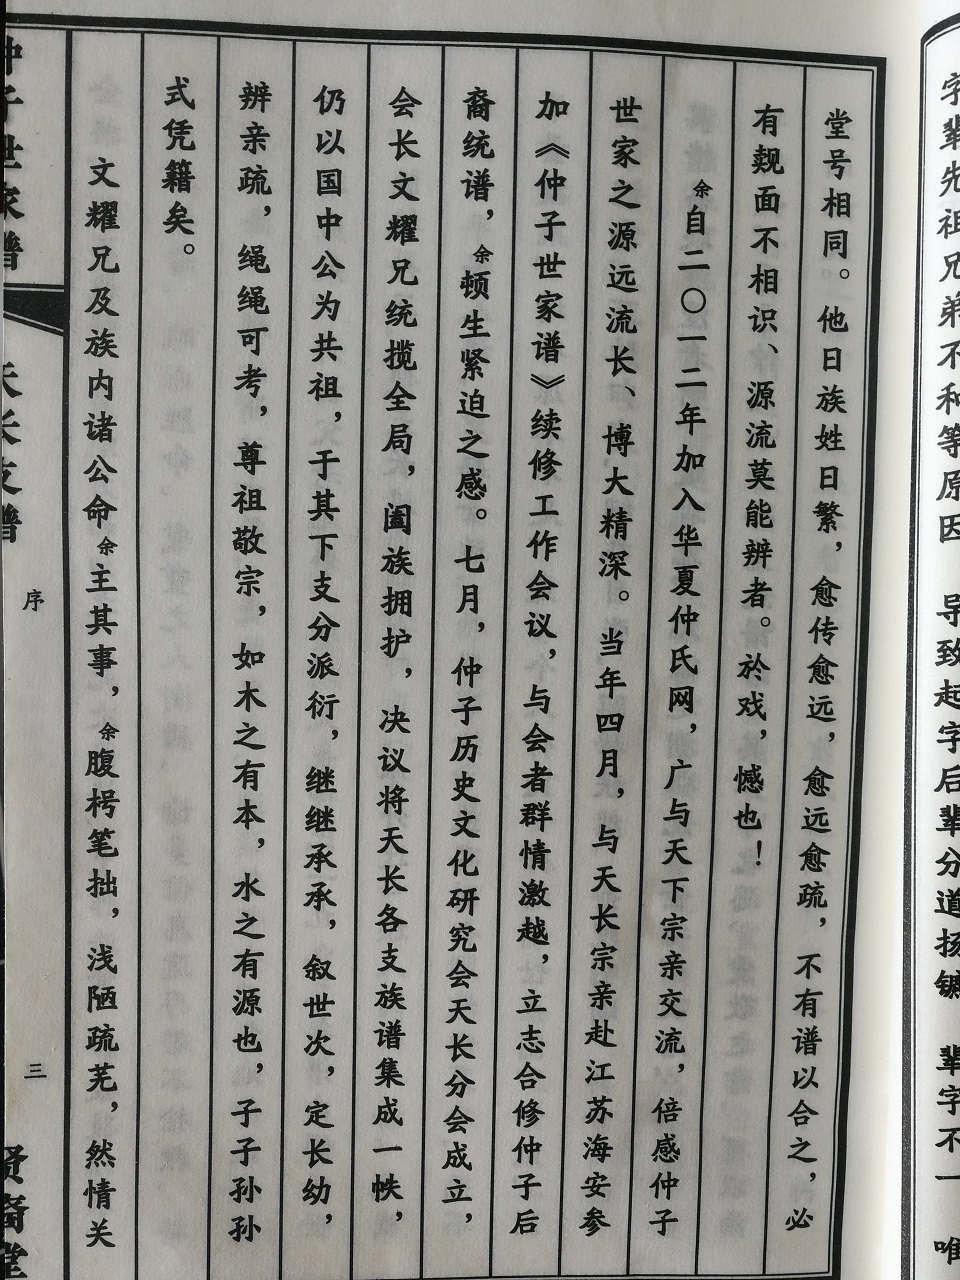 字辈先祖兄弟不和等原因，导致起字后辈分道扬镳，辈字不一，唯
堂号相同。他日族姓日繁，愈传愈远，愈远愈疏，不有谱以合之，必
有觌面不相识、源流莫能辨者。於戏，憾也！
余自二〇一二年加入华夏仲氏网，广与天下宗亲交流，倍感仲子
世家之源远流长、博大精深。当年四月，与天长宗亲赴江苏海安参
加《仲子世家谱》续修工作会议，与会者群情激越，立志合修仲子后
裔统谱，余顿生紧迫之感。七月，仲子历史文化研究会天长分会成立，
会长文耀兄统揽全局，阖族拥护，决议将天长各支族谱集成一帙，
仍以国中公为共祖，于其下支分派衍，继继承承，叙世次，定长幼，
辨亲疏，绳绳可考，尊祖敬宗，如木之有本，水之有源也，子子孙孙
式凭籍矣。
文耀兄及族内诸公命余主其事，余腹枵笔拙，浅陋疏芜，然情关
仲子世家谱
天长支谱
序
三
贤裔堂